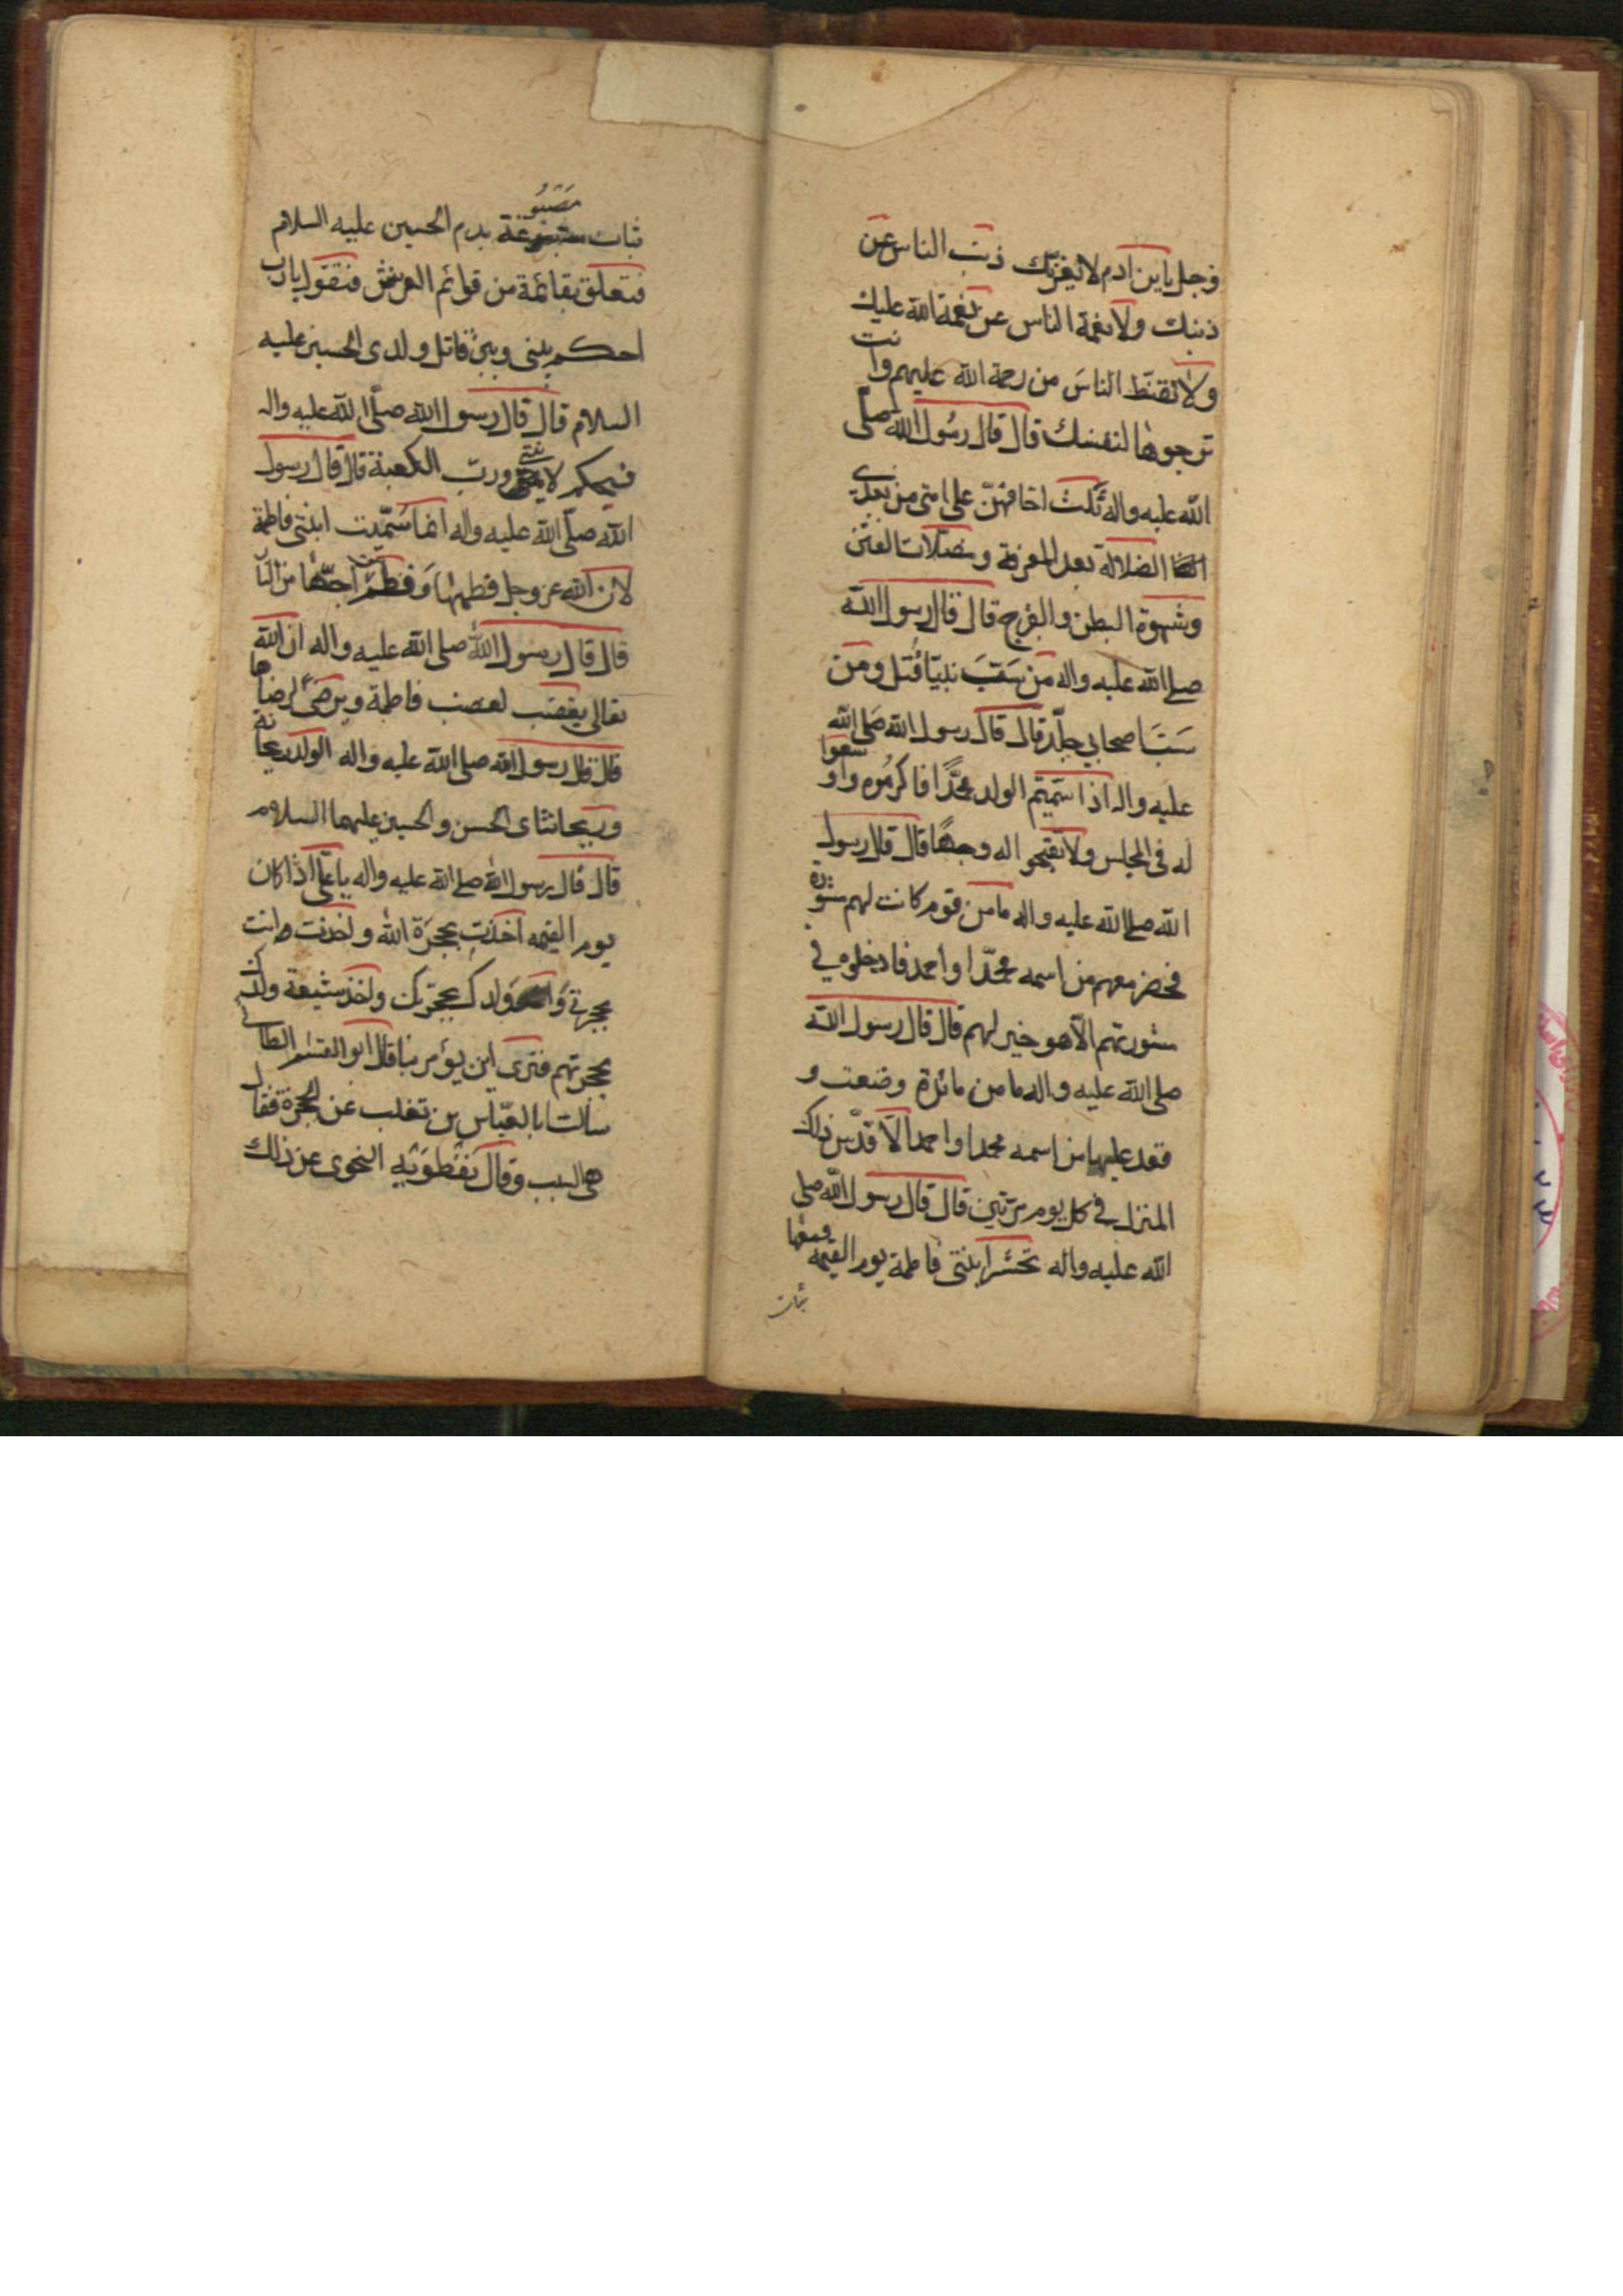 وجل يا بن ادم لا يغرنّك ذنب الناس عن
ذنبك ولا نعمة الناس عن نعمة الله عليك
ولا تقنّط الناسَ من رحمة الله عليهم وانت
ترجوها لنفسك قال قال رسُول الله صلّى
الله عليه واله ثلث اخافهنّ على امتى من بعدي
الضلالة بعد المعرفة ومضلّات الفتن
وشهوة البطن والفرج قال قال رسول الله
صلى الله عليه واله من سَبَّ نبيّا قُتل ومن
سَبَّ صحابي جلّد قال قال رسول الله صَلى الله
عليه واله اذا سَمّيتم الولد محمّدًا فاكرمُوه واوسعوا
له فى المجلس ولا تقبحوا له وجهًا قال قال رسول
الله صلى الله عليه واله ما من قوم كانت لهم مشورة
فحضر معهم من اسمه محمّدا واحمد فادخلوه في
مشورتهم الّا هو خير لهم قال قال رسول الله
صلى الله عليه واله ما من مائدة وضعت و
قعد عليها من اسمه محمدا واحمد الّا قدّس ذلك
المنزل في كل يوم مرّتين قال قال رسول الله صلى
الله عليه واله تحشر ابنتي فاطمة يوم القيمه ومعها
ثياب
ثياب مصبُوغة بدم الحسين عليه السلام
فتعلق بقائمة من قوائم العرش فتقول يا رب
احكم بيني وبين قاتل ولدى الحسين عليه
السلام قال قال رسول الله صلّى الله عليه واله
فيحكم لابنتي وربّ الكعبة قال قال رسول
الله صلّى الله عليه واله انما سَمّيت ابنتى فاطمة
لان الله عز وجل فطمها وَفطم من احبّها من النار
قال قال رسول الله صلى الله عليه واله ان الله
تعالى يغضب لغضب فاطمة ويرضى لرضاها
قال قال رسول الله صلى الله عليه واله الولد ريحانة
وريحانتاى الحسن والحسين عليهما السلام
قال قال رسول الله صلى الله عليه واله يا علىّ اذا كان
يوم القيمه اخذت بحجزة الله واخذت انت
بحجزتي وَاخذ وَلدك بحجزتك واخذ شيعة ولدك
بحجزتهم فترى اين يؤمر بنا قال ابو القسم الطائى
سالت ابا العبّاس بن تغلب عن الحجزة فقال
هي السبب وقال نفطويه النحوى عن ذلك